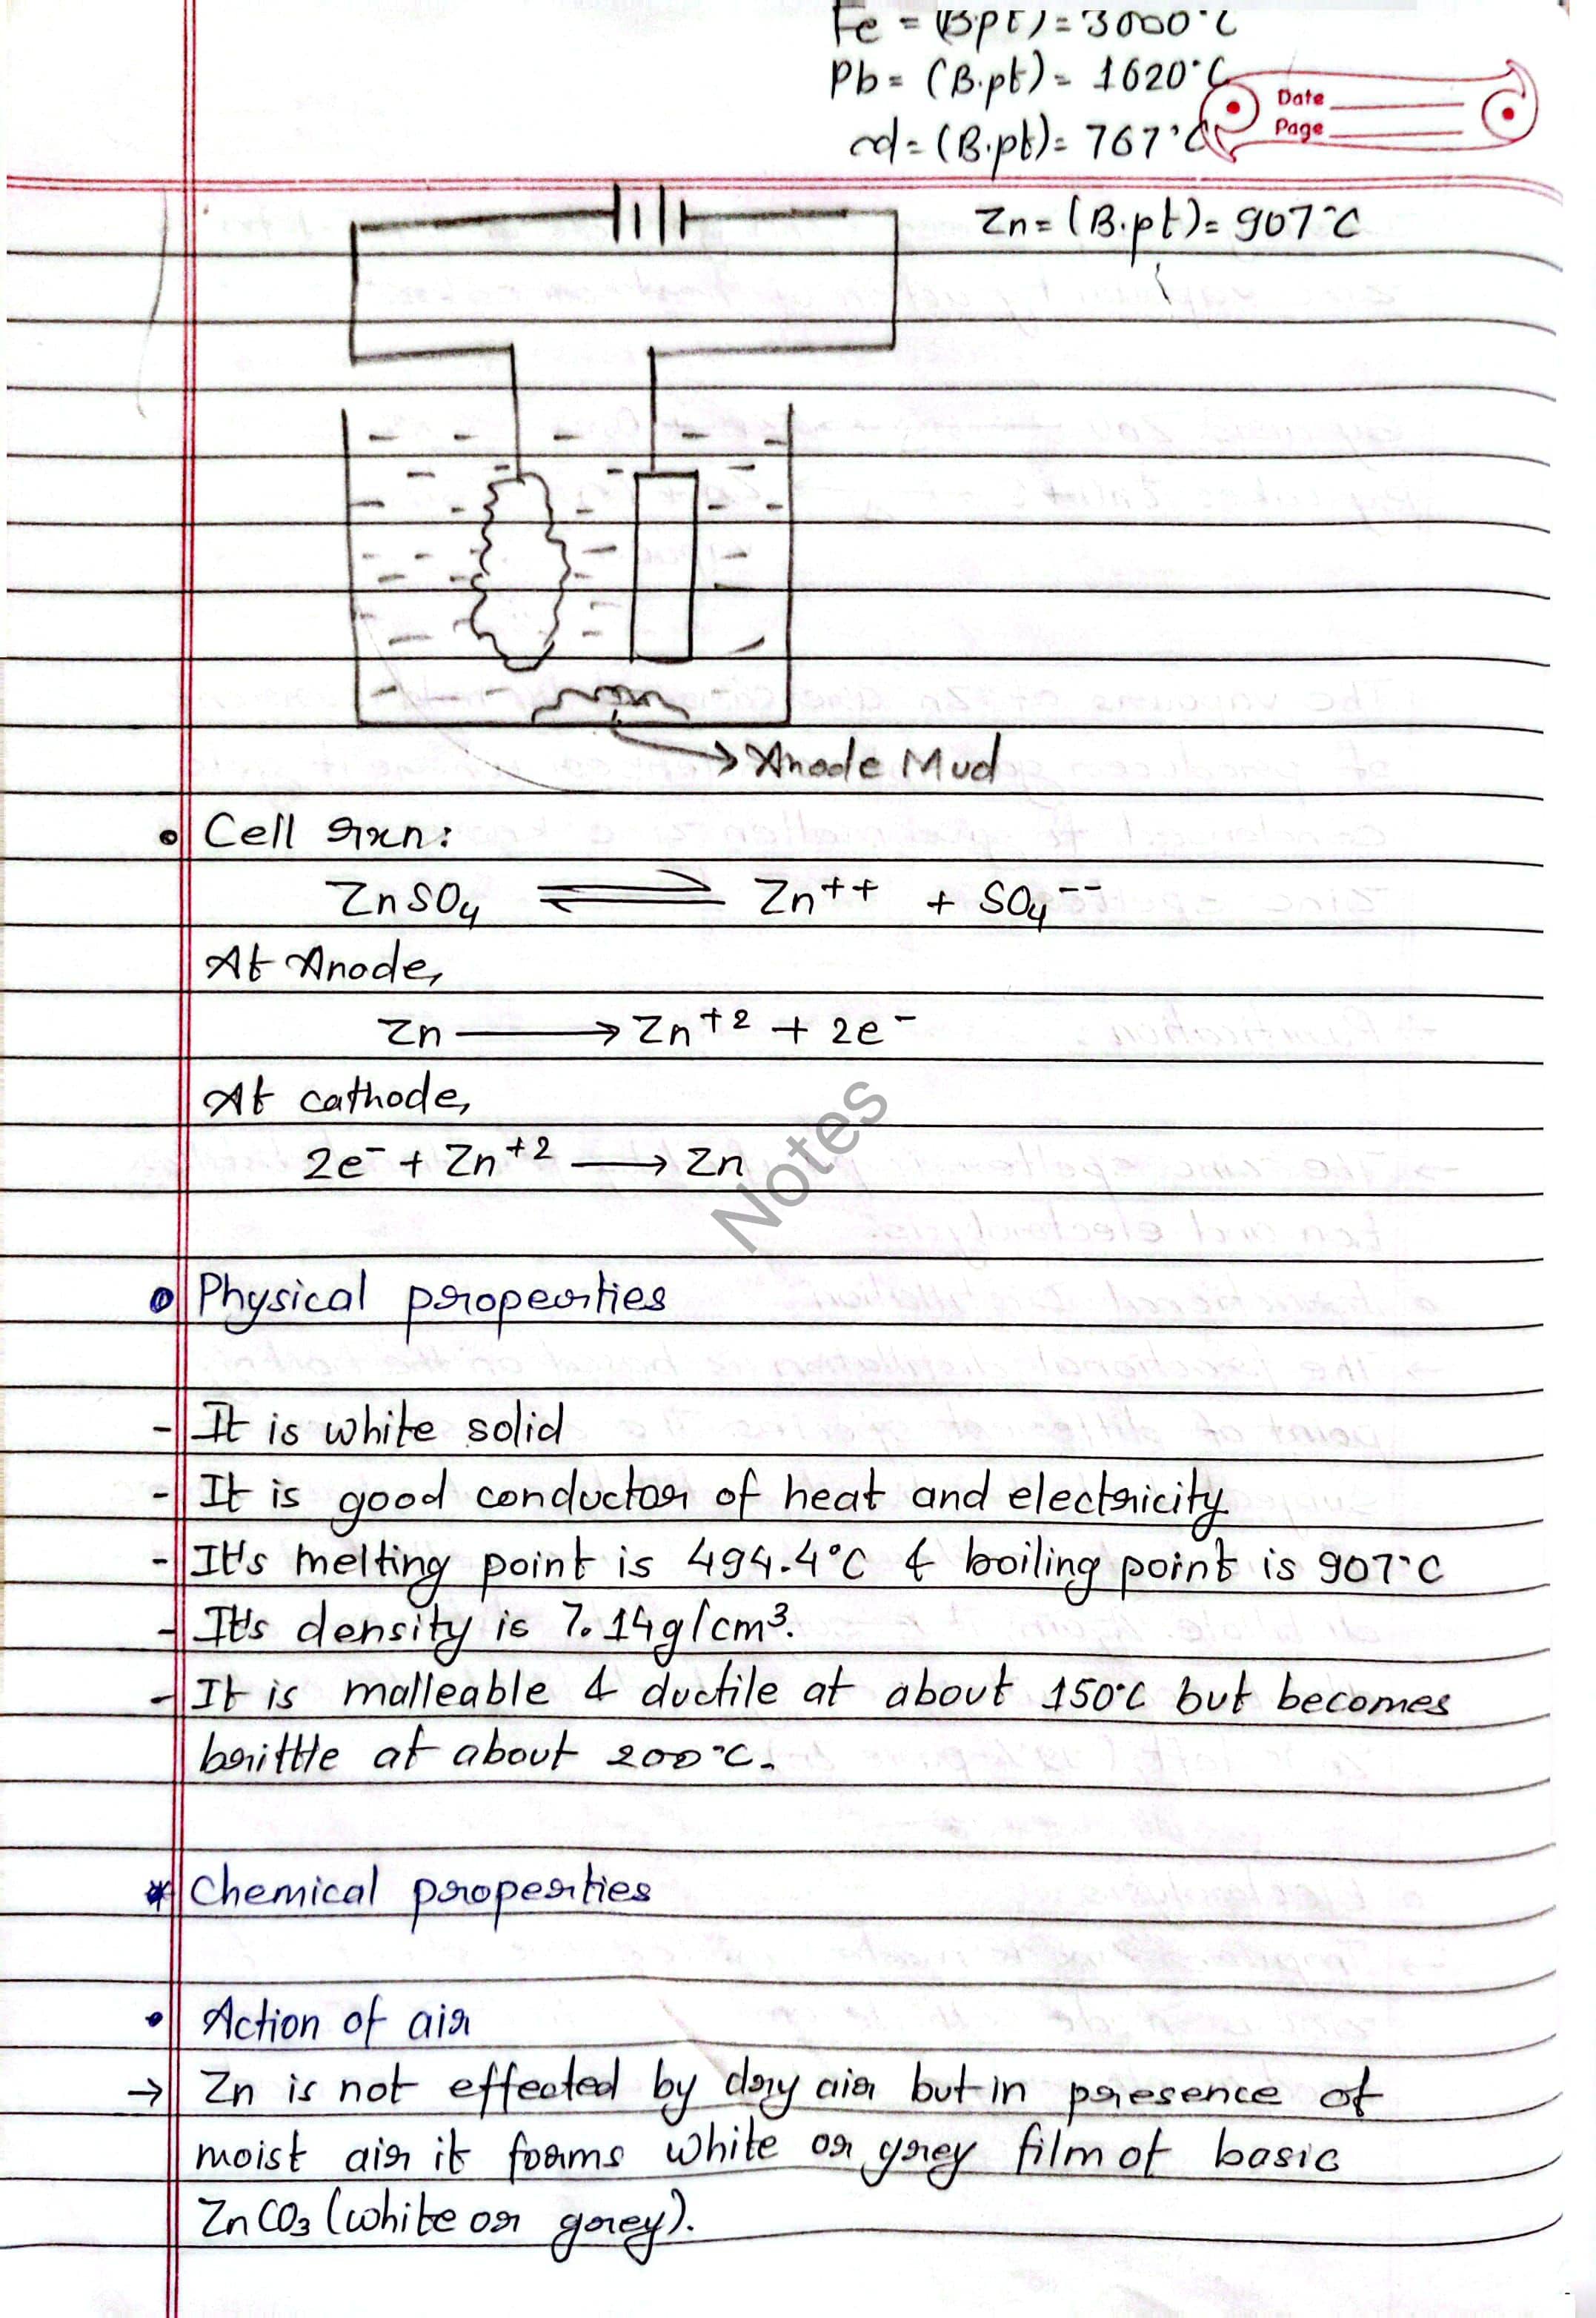 Fe = (B.pt) = 3000°C
Pb = (B.pt) = 1620°C
Date
Page
cd = (B.pt) = 767°C
Zn = (B.pt) = 907°C
→ Anode Mud
• Cell rxn:
ZnSO₄ ⇌ Zn⁺⁺ + SO₄⁻⁻
At Anode,
Zn ⟶ Zn⁺² + 2e⁻
At cathode,
2e⁻ + Zn⁺² ⟶ Zn
Notes
• Physical properties
- It is white solid
- It is good conductor of heat and electricity
- It's melting point is 494.4°C & boiling point is 907°C
- It's density is 7.14g/cm³.
- It is malleable & ductile at about 150°C but becomes
brittle at about 200°C.
* Chemical properties
• Action of air
→ Zn is not effected by dry air but in presence of
moist air it forms white or grey film of basic
ZnCO₃ (white or grey).